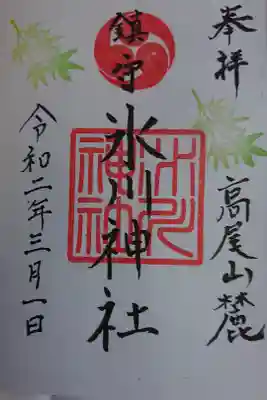 奉拝
高尾山麓
鎮守
氷川神社
令和二年三月一日